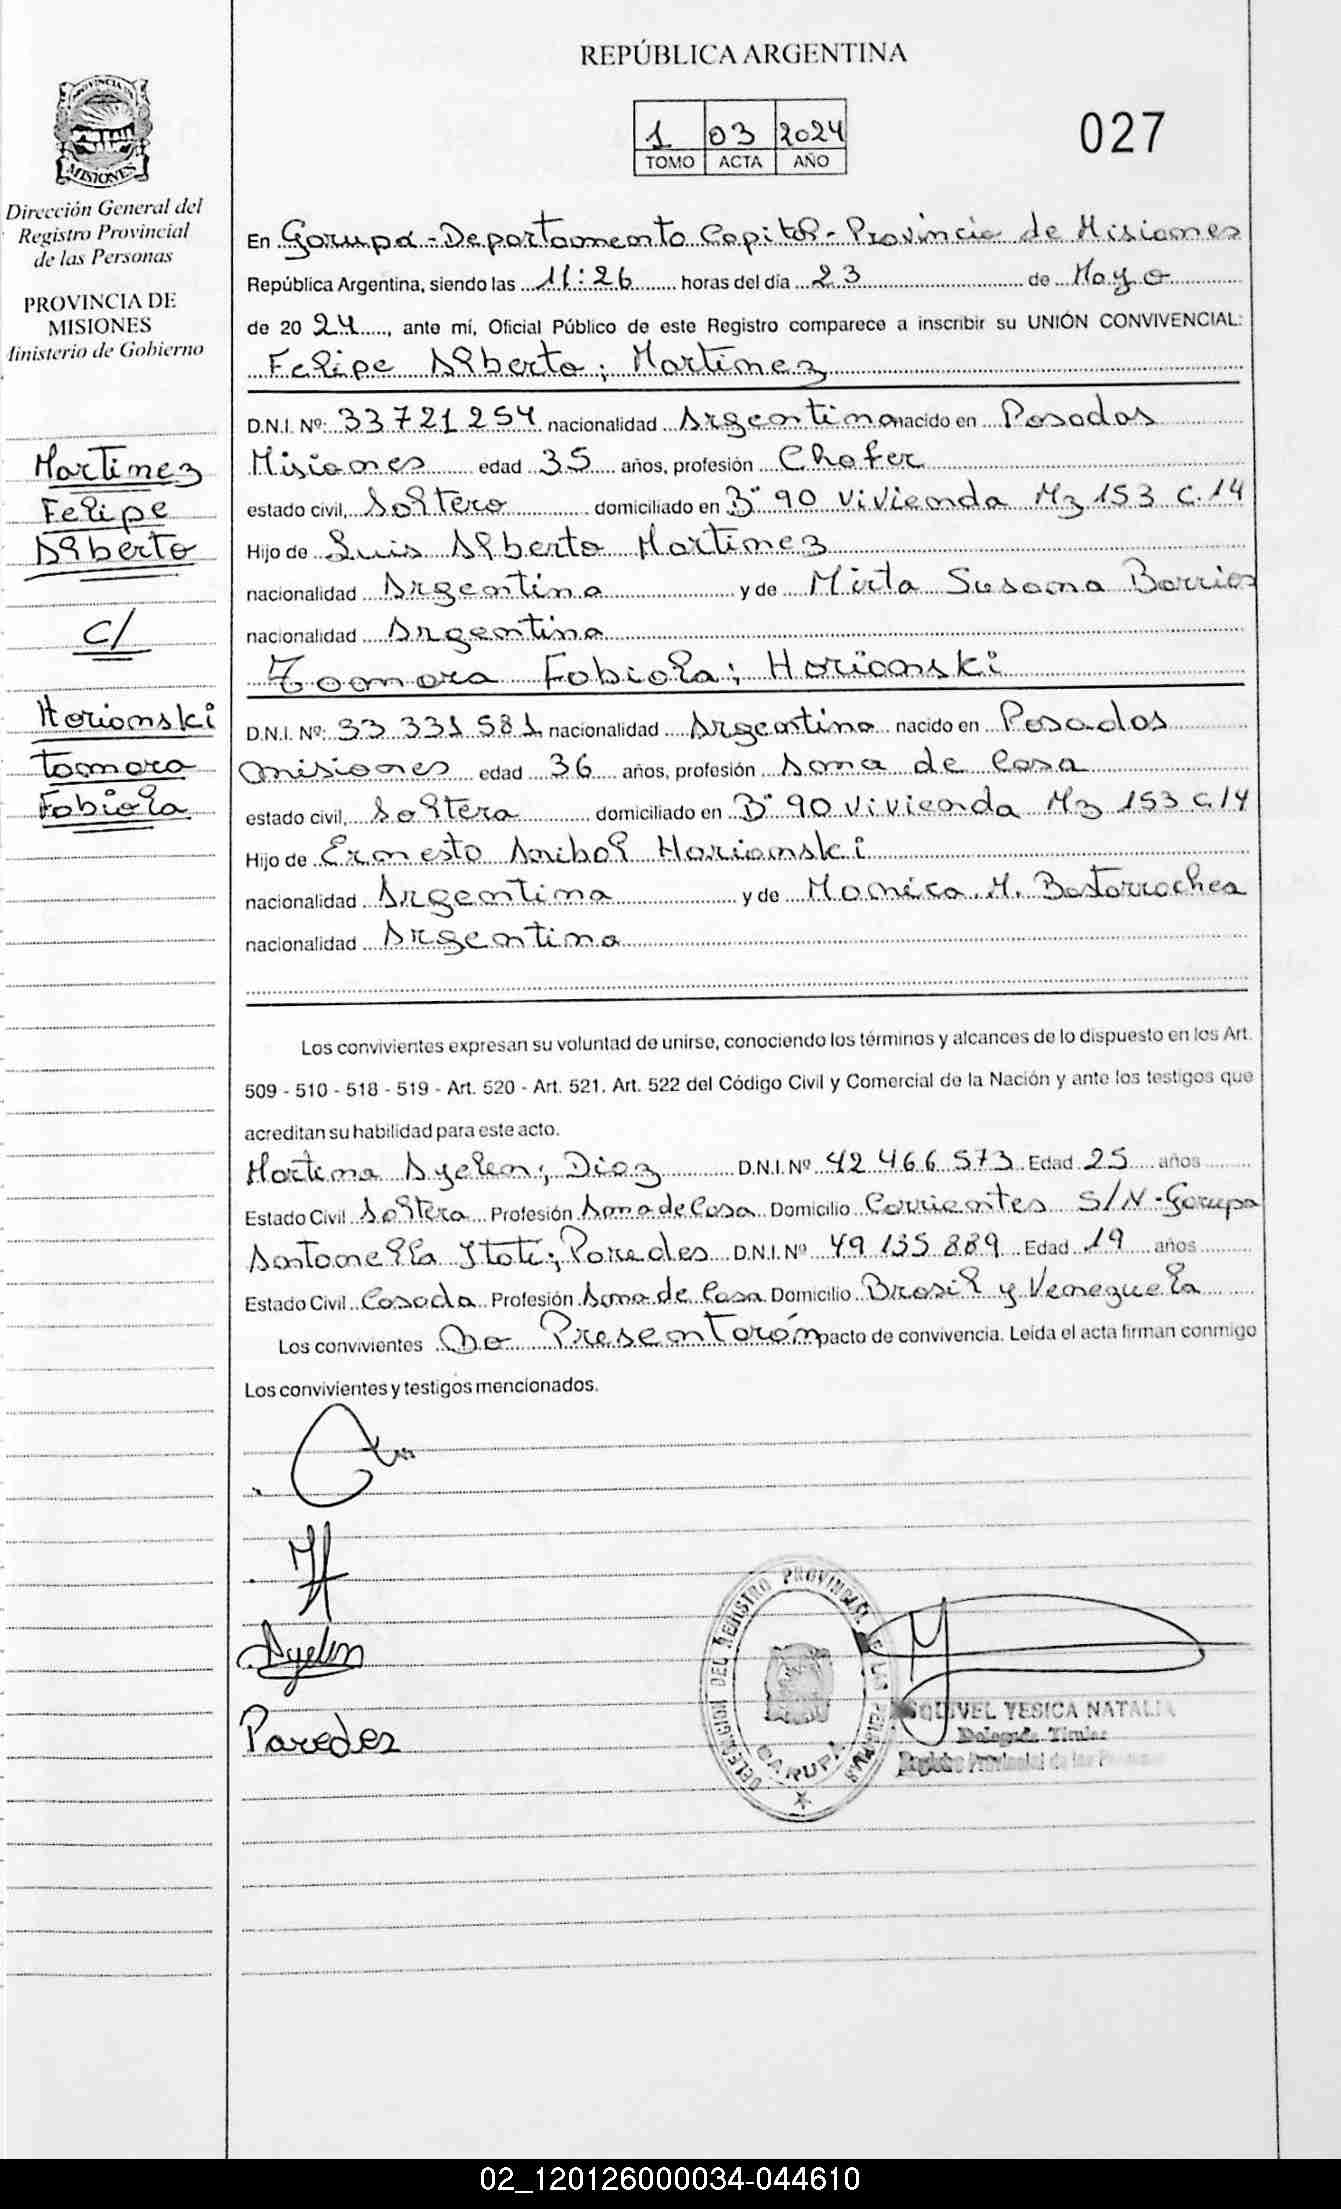 REPÚBLICA ARGENTINA
1 03 2024
TOMO ACTA AÑO
027
PROVINCIA DE
MISIONES
Dirección General del
Registro Provincial
de las Personas
PROVINCIA DE
MISIONES
Ministerio de Gobierno
Martinez
Felipe
Alberto
C/
Horianski
Tamara
Fabiola
En Garupá - Departamento Capital - Provincia de Misiones
República Argentina, siendo las 11:26 horas del día 23 de Mayo
de 20 24, ante mí, Oficial Público de este Registro comparece a inscribir su UNIÓN CONVIVENCIAL:
Felipe Alberto; Martinez
D.N.I. Nº: 33 721 254 nacionalidad Argentina nacido en Posadas
Misiones edad 35 años, profesión Chofer
estado civil, Soltero domiciliado en Bº 90 Vivienda Mz 153 C.14
Hijo de Luis Alberto Martinez
nacionalidad Argentina y de Mirta Susana Barrios
nacionalidad Argentina
Tamara Fabiola; Horianski
D.N.I. Nº: 33 331 581 nacionalidad Argentina nacido en Posadas
misiones edad 36 años, profesión Ama de Casa
estado civil, Soltera domiciliado en Bº 90 Vivienda Mz 153 C.14
Hijo de Ernesto Anibal Horianski
nacionalidad Argentina y de Monica M. Bastarrachea
nacionalidad Argentina
Los convivientes expresan su voluntad de unirse, conociendo los términos y alcances de lo dispuesto en los Art.
509 - 510 - 518 - 519 - Art. 520 - Art. 521. Art. 522 del Código Civil y Comercial de la Nación y ante los testigos que
acreditan su habilidad para este acto.
Martina Ayelen; Diaz D.N.I. Nº 42 466 573 Edad 25 años
Estado Civil Soltera Profesión Ama de Casa Domicilio Corrientes S/N - Garupa
Antonella Itati; Paredes D.N.I. Nº 49 135 889 Edad 19 años
Estado Civil Casada Profesión Ama de Casa Domicilio Brasil y Venezuela
Los convivientes no Presentarón pacto de convivencia. Leída el acta firman conmigo
Los convivientes y testigos mencionados.
Ayelen
Paredes
DELEGACION DEL REGISTRO PROVINCIAL DE LAS PERSONAS
GARUPA
YESICA NATALIA
Delegada Titular
Registro Provincial de las
02_120126000034-044610